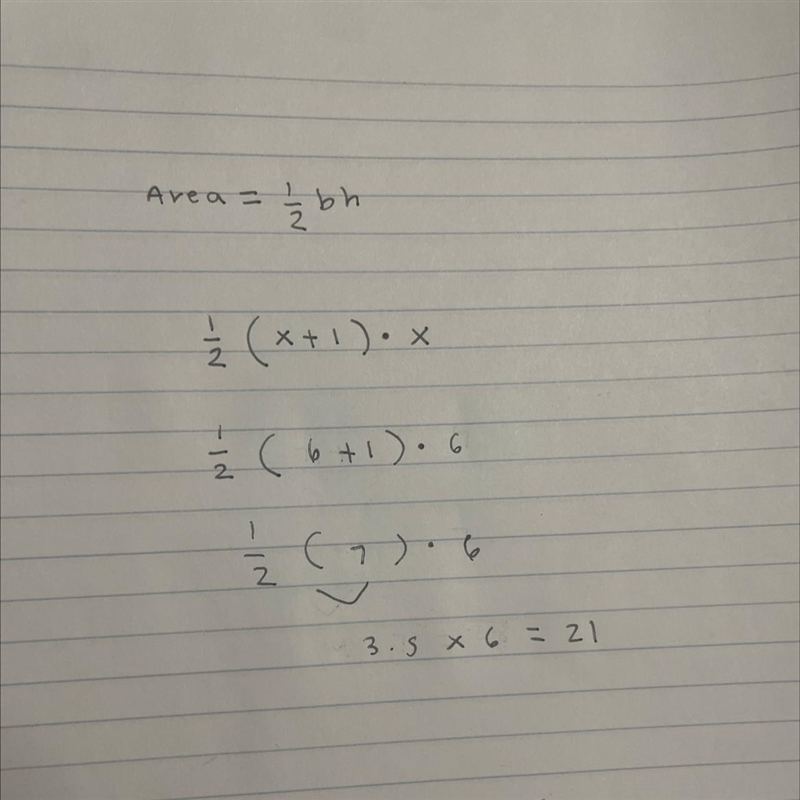 Area = 1/2 bh
1/2 (x + 1) · x
1/2 (6 + 1) · 6
1/2 (7) · 6
3.5 x 6 = 21